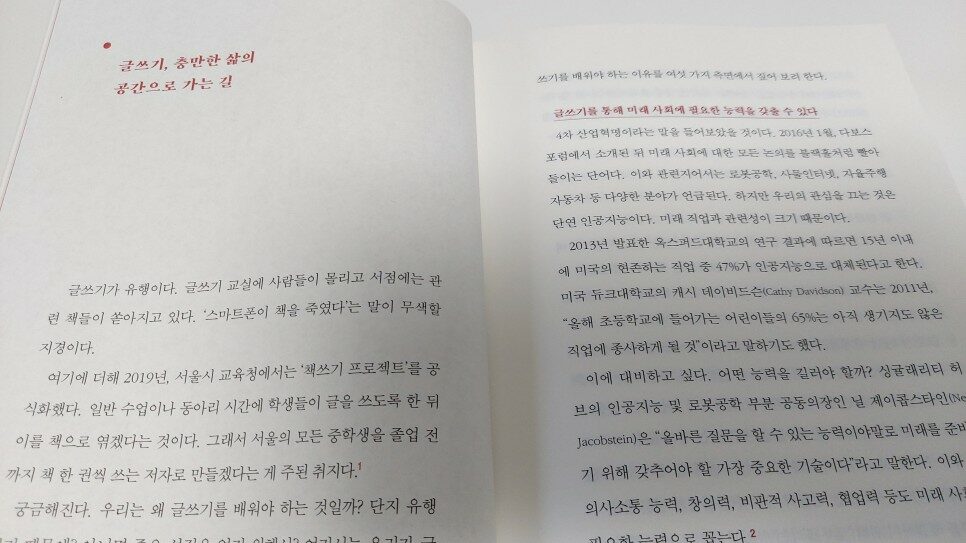 글쓰기, 충만한 삶의
공간으로 가는 길
글쓰기가 유행이다. 글쓰기 교실에 사람들이 몰리고 서점에는 관
련 책들이 쏟아지고 있다. ‘스마트폰이 책을 죽였다’는 말이 무색할
지경이다.
여기에 더해 2019년, 서울시 교육청에서는 ‘책쓰기 프로젝트’를 공
식화했다. 일반 수업이나 동아리 시간에 학생들이 글을 쓰도록 한 뒤
이를 책으로 엮겠다는 것이다. 그래서 서울의 모든 중학생을 졸업 전
까지 책 한 권씩 쓰는 저자로 만들겠다는 게 주된 취지다.1
궁금해진다. 우리는 왜 글쓰기를 배워야 하는 것일까? 단지 유행
쓰기를 배워야 하는 이유를 여섯 가지 측면에서 짚어 보려 한다.
글쓰기를 통해 미래 사회에 필요한 능력을 갖출 수 있다
4차 산업혁명이라는 말을 들어보았을 것이다. 2016년 1월, 다보스
포럼에서 소개된 뒤 미래 사회에 대한 모든 논의를 블랙홀처럼 빨아
들이는 단어다. 이와 관련지어서는 로봇공학, 사물인터넷, 자율주행
자동차 등 다양한 분야가 언급된다. 하지만 우리의 관심을 끄는 것은
단연 인공지능이다. 미래 직업과 관련성이 크기 때문이다.
2013년 발표한 옥스퍼드대학교의 연구 결과에 따르면 15년 이내
에 미국의 현존하는 직업 중 47%가 인공지능으로 대체된다고 한다.
미국 듀크대학교의 캐시 데이비드슨(Cathy Davidson) 교수는 2011년,
“올해 초등학교에 들어가는 어린이들의 65%는 아직 생기지도 않은
직업에 종사하게 될 것”이라고 말하기도 했다.
이에 대비하고 싶다. 어떤 능력을 길러야 할까? 싱귤래리티 허
브의 인공지능 및 로봇공학 부분 공동의장인 닐 제이콥스타인(Ne
Jacobstein)은 “올바른 질문을 할 수 있는 능력이야말로 미래를 준비
기 위해 갖추어야 할 가장 중요한 기술이다”라고 말한다. 이와
의사소통 능력, 창의력, 비판적 사고력, 협업력 등도 미래 사
필요한 능력으로 꼽는다.2